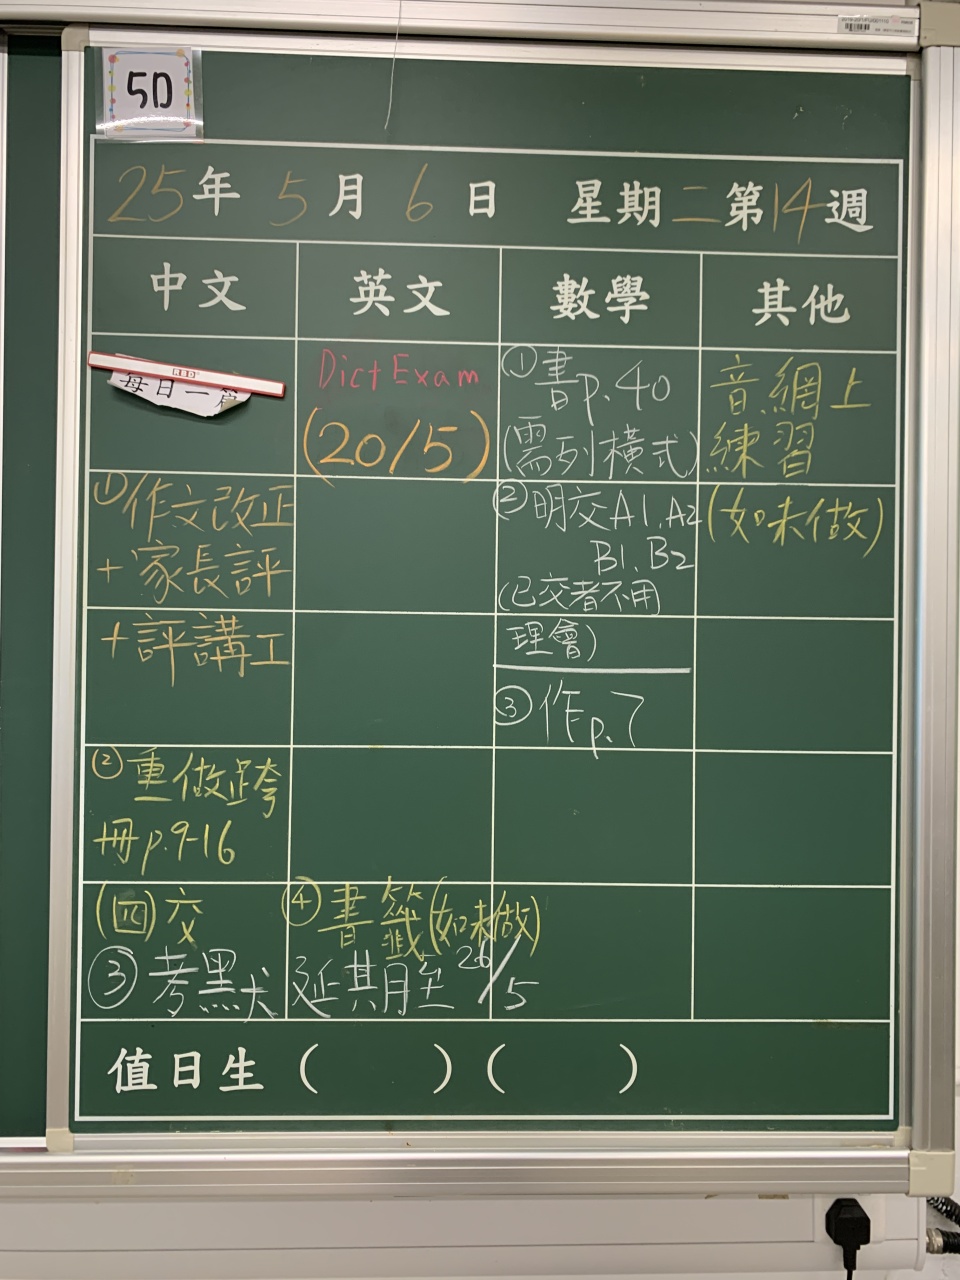 5D
25年 5月 6日 星期二第14週
中文 英文 數學 其他
RBD
每日一篇
①作文改正
+家長評
+評講工
②重做跨
冊p.9-16
(四)交
③考默 延期至20/5
④書籤(如未做)
Dict Exam
(20/5)
①書p.40
(需列橫式)
②明交A1、A2
B1、B2
(已交者不用
理會)
③作p.7
音網上
練習
(如未做)
值日生 ( ) ( )